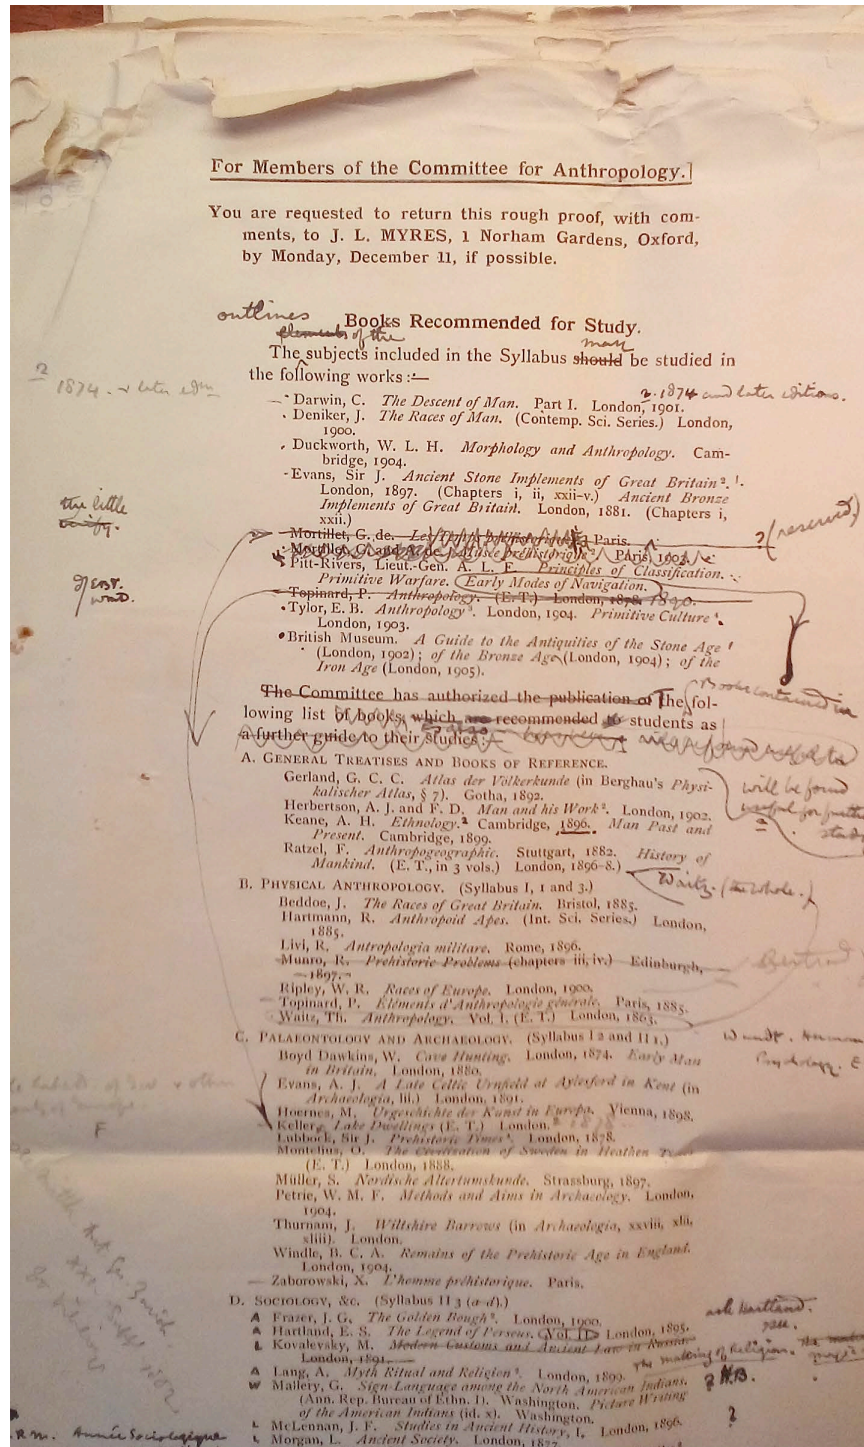 For Members of the Committee for Anthropology.
You are requested to return this rough proof, with com-
ments, to J. L. MYRES, 1 Norham Gardens, Oxford,
by Monday, December 11, if possible.
outlines
elements of the
Books Recommended for Study.
may
The subjects included in the Syllabus should be studied in
the following works :—
2
1874. & later edns
2. 1874 and later editions.
Darwin, C. The Descent of Man. Part I. London, 1901.
Deniker, J. The Races of Man. (Contemp. Sci. Series.) London,
1900.
Duckworth, W. L. H. Morphology and Anthropology. Cam-
bridge, 1904.
Evans, Sir J. Ancient Stone Implements of Great Britain². ¹.
London, 1897. (Chapters i, ii, xxii-v.) Ancient Bronze
Implements of Great Britain. London, 1881. (Chapters i,
xxii.)
the little
? (reserved)
Mortillet, G. de. Paris.
Mortillet, G. and A. de. Musée préhistorique². Paris, 1903.
Pitt-Rivers, Lieut.-Gen. A. L. F. Principles of Classification.
Primitive Warfare. (Early Modes of Navigation.)
Topinard, P. Anthropology. (E. T.) London, 1878. 1890.
Tylor, E. B. Anthropology³. London, 1904. Primitive Culture⁴.
London, 1903.
British Museum. A Guide to the Antiquities of the Stone Age
(London, 1902); of the Bronze Age (London, 1904); of the
Iron Age (London, 1905).
The Committee has authorized the publication of The fol-
Books contained in
lowing list of books, which are recommended to students as
a further guide to their studies :—
will be found
useful for further
study
A. GENERAL TREATISES AND BOOKS OF REFERENCE.
Gerland, G. C. C. Atlas der Völkerkunde (in Berghau's Physi-
kalischer Atlas, § 7). Gotha, 1892.
Herbertson, A. J. and F. D. Man and his Work². London, 1902.
Keane, A. H. Ethnology.² Cambridge, 1896. Man Past and
Present. Cambridge, 1899.
Ratzel, F. Anthropogeographic. Stuttgart, 1882. History of
Mankind. (E. T., in 3 vols.) London, 1896-8.)
Waitz. (the whole.)
B. PHYSICAL ANTHROPOLOGY. (Syllabus I, 1 and 3.)
Beddoe, J. The Races of Great Britain. Bristol, 1885.
Hartmann, R. Anthropoid Apes. (Int. Sci. Series.) London,
1885.
Livi, R. Antropologia militare. Rome, 1896.
Munro, R. Prehistoric Problems (chapters iii, iv.) Edinburgh,
1897.
Ripley, W. R. Races of Europe. London, 1900.
Topinard, P. Eléments d'Anthropologie générale. Paris, 1885.
Waitz, Th. Anthropology. Vol. I. (E. T.) London, 1863.
C. PALAEONTOLOGY AND ARCHAEOLOGY. (Syllabus I 2 and II 1.)
Wundt.
Psychology. E
Boyd Dawkins, W. Cave Hunting. London, 1874. Early Man
in Britain, London, 1880.
Evans, A. J. A Late Celtic Urnfield at Aylesford in Kent (in
Archaeologia, lii.) London, 1891.
Hoernes, M. Urgeschichte der Kunst in Europa. Vienna, 1898.
Keller, Lake Dwellings (E. T.) London.
Lubbock, Sir J. Prehistoric Times⁴. London, 1878.
Montelius, O. The Civilisation of Sweden in Heathen Times
(E. T.) London, 1888.
Müller, S. Nordische Altertumskunde. Strassburg, 1897.
Petrie, W. M. F. Methods and Aims in Archaeology. London,
1904.
Thurnam, J. Wiltshire Barrows (in Archaeologia, xxviii, xlii,
xliii). London.
Windle, B. C. A. Remains of the Prehistoric Age in England.
London, 1904.
Zaborowski, X. L'homme préhistorique. Paris.
D. SOCIOLOGY, &c. (Syllabus II 3 (a-d).)
ask Hartland.
A Frazer, J. G. The Golden Bough². London, 1900.
A Hartland, E. S. The Legend of Perseus. (Vol. II) London, 1895.
L Kovalevsky, M. Modern Customs and Ancient Law in Russia.
London, 1891.
The making of Religion.
A Lang, A. Myth Ritual and Religion². London, 1899.
? N.B.
W Mallery, G. Sign-Language among the North American Indians.
(Ann. Rep. Bureau of Ethn. I). Washington. Picture Writing
of the American Indians (id. x). Washington.
L McLennan, J. F. Studies in Ancient History, I. London, 1896.
?
R.M. Année Sociologique
L Morgan, L. Ancient Society. London, 1877.